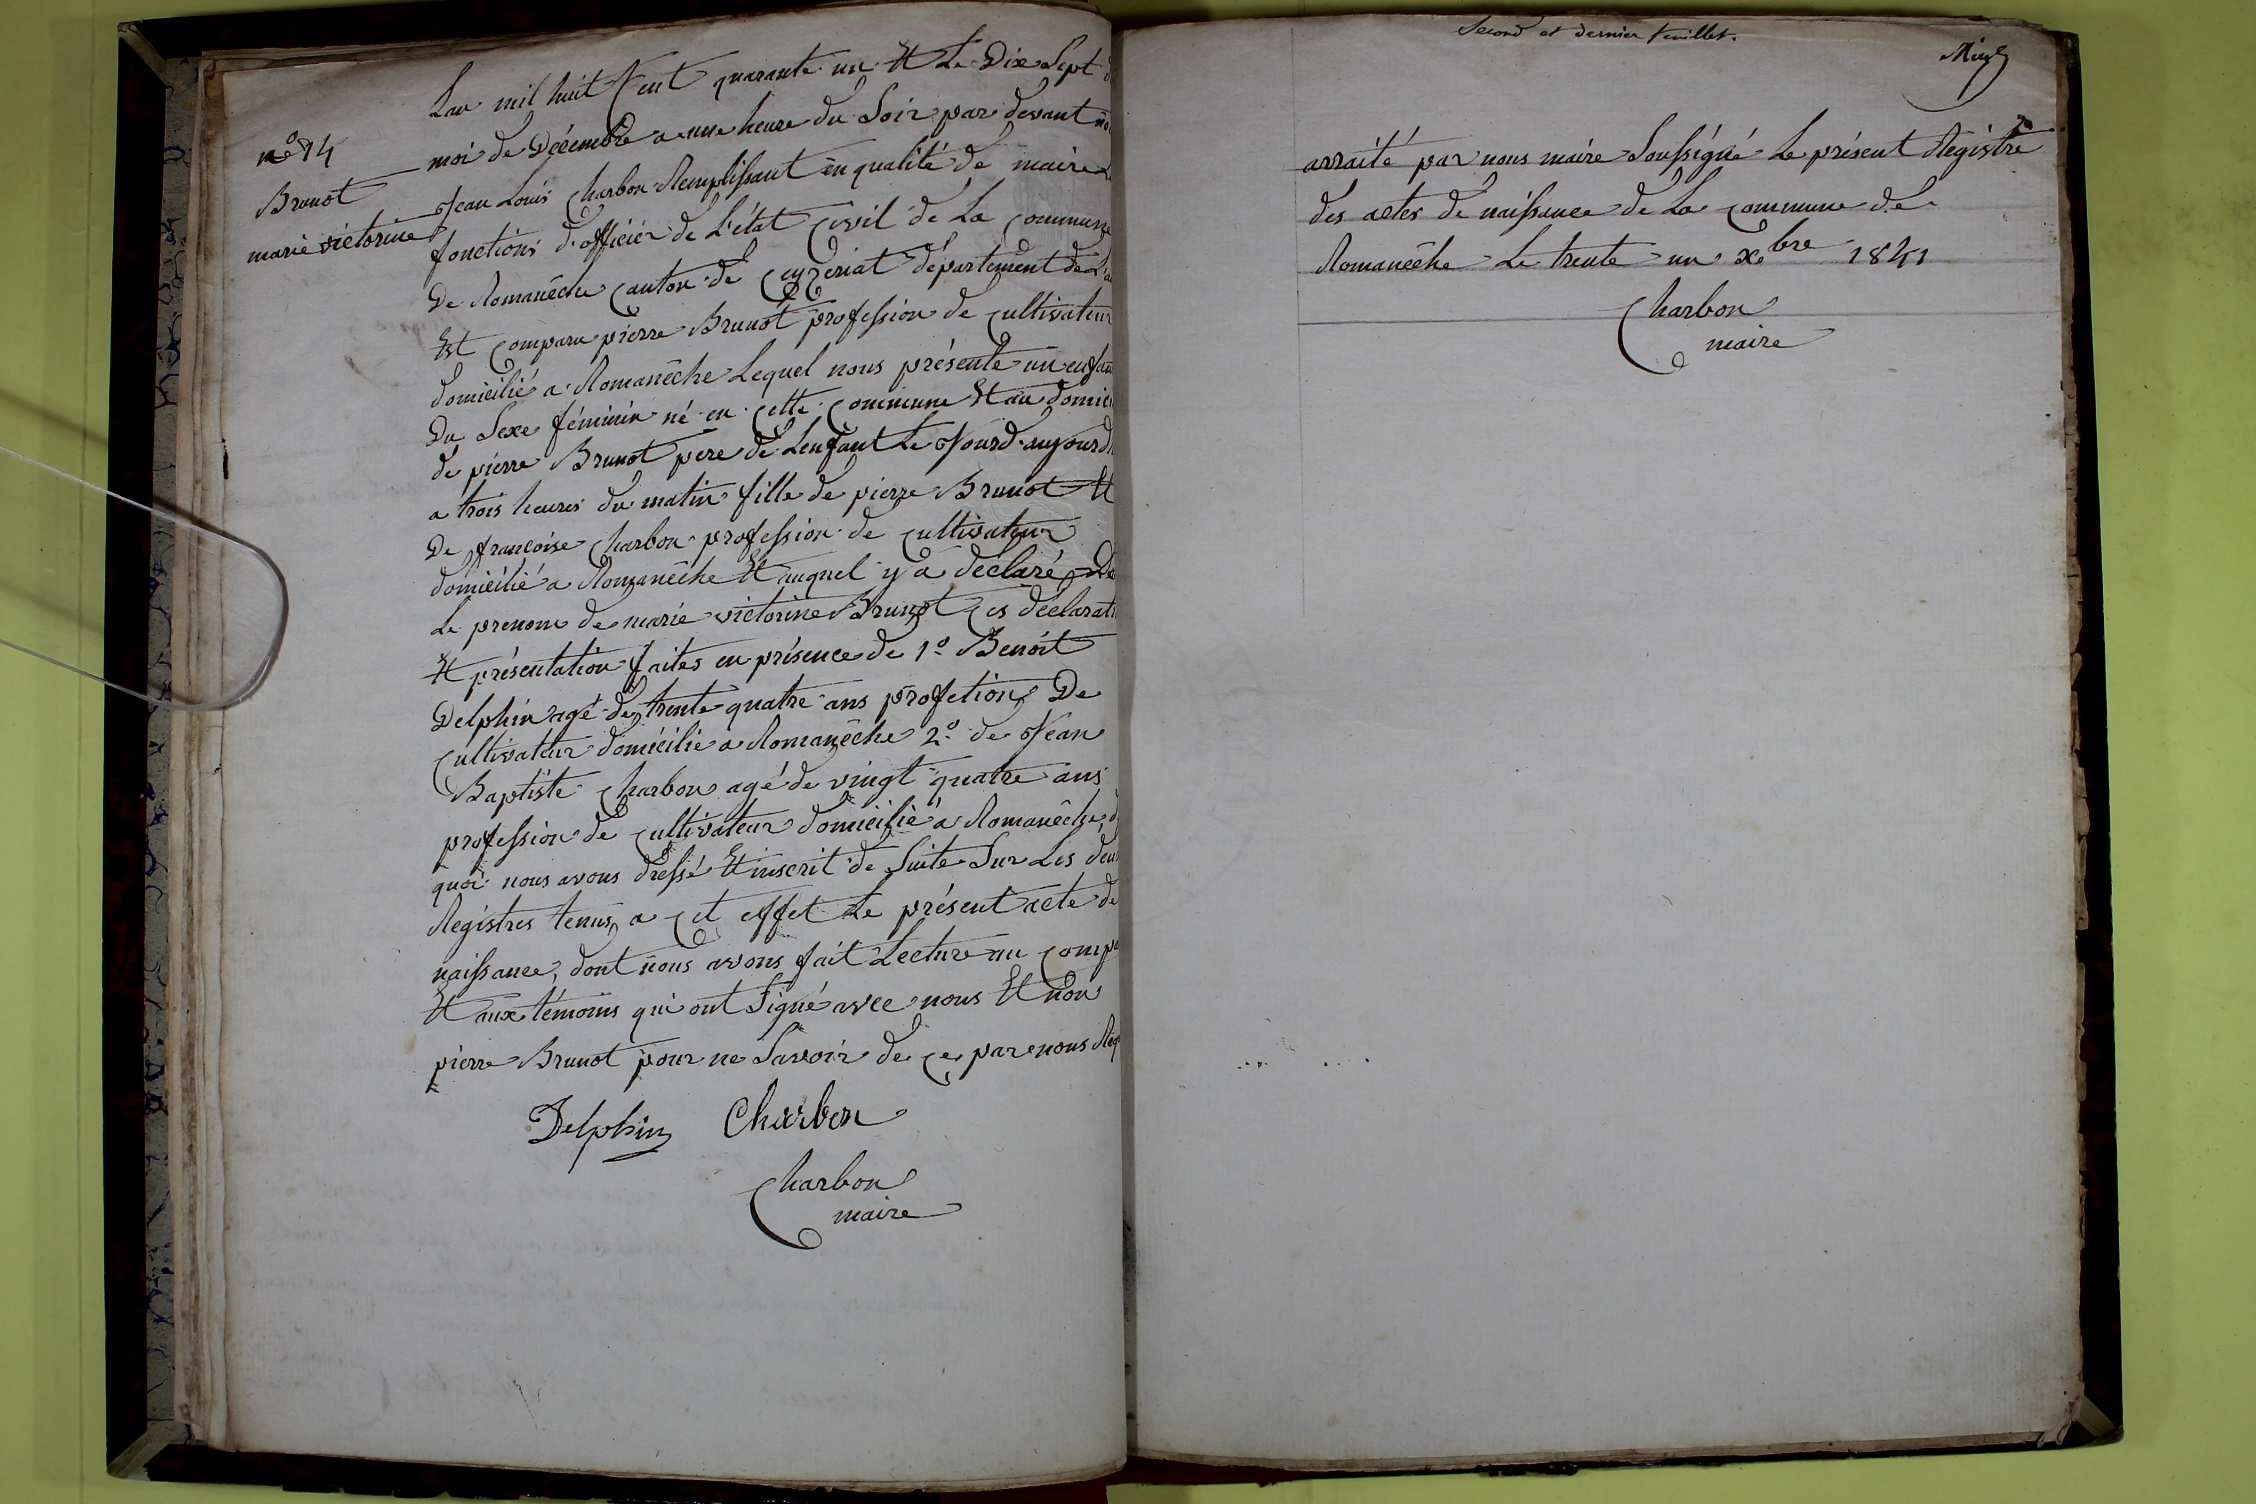 n° 14
Brunot
marie victorine
Lan mil huit Cent quarante un Et Le Dix Sept
moi de Décembre a une heure du Soir par devant
Jean Louis Charbon Remplissant en qualité de maire
fonctions d'officier de L'état Civil de La Commune
De Romanêche Canton de Ceyzeriat département de L'a
Est Comparu pierre Brunot profession de Cultivateur
domicilié a Romanêche Lequel nous présente un enfan
Du Sexe féminin né en Cette Commune Et au domici
de pierre Brunot pere de Lenfant Le Jourd aujourd
a trois heures du matin fille de pierre Brunot Et
De francoise Charbon profession de Cultivateur
domicilié a Romanêche Et auquel y a déclaré
Le prenom de marie victorine Brunot Ces déclarati
Et présentation faites en présence de 1° Benoit
Delphin agé de trente quatre ans profetion De
Cultivateur domicilie a Romanêche 2° de Jean
Baptiste Charbon agé de vingt quatre ans
profession de Cultivateur domicilié a Romanêche, d
quoi nous avons dressé Et inscrit de Suite Sur Les deu
Registres tenus a Cet effet Le présent acte de
naissance, dont nous avons fait Lecture au Compa
Et aux témoins qui ont Signé avec nous Et non
pierre Brunot pour ne Savoir de Ce par nous Req
Delphin Charbon
Charbon
maire
Second et dernier feuillet.
arraité par nous maire Soussigné Le présent Régistre
des actes de naissance de La Commune de
Romanêche Le trente un Xbre 1841
Charbon
maire